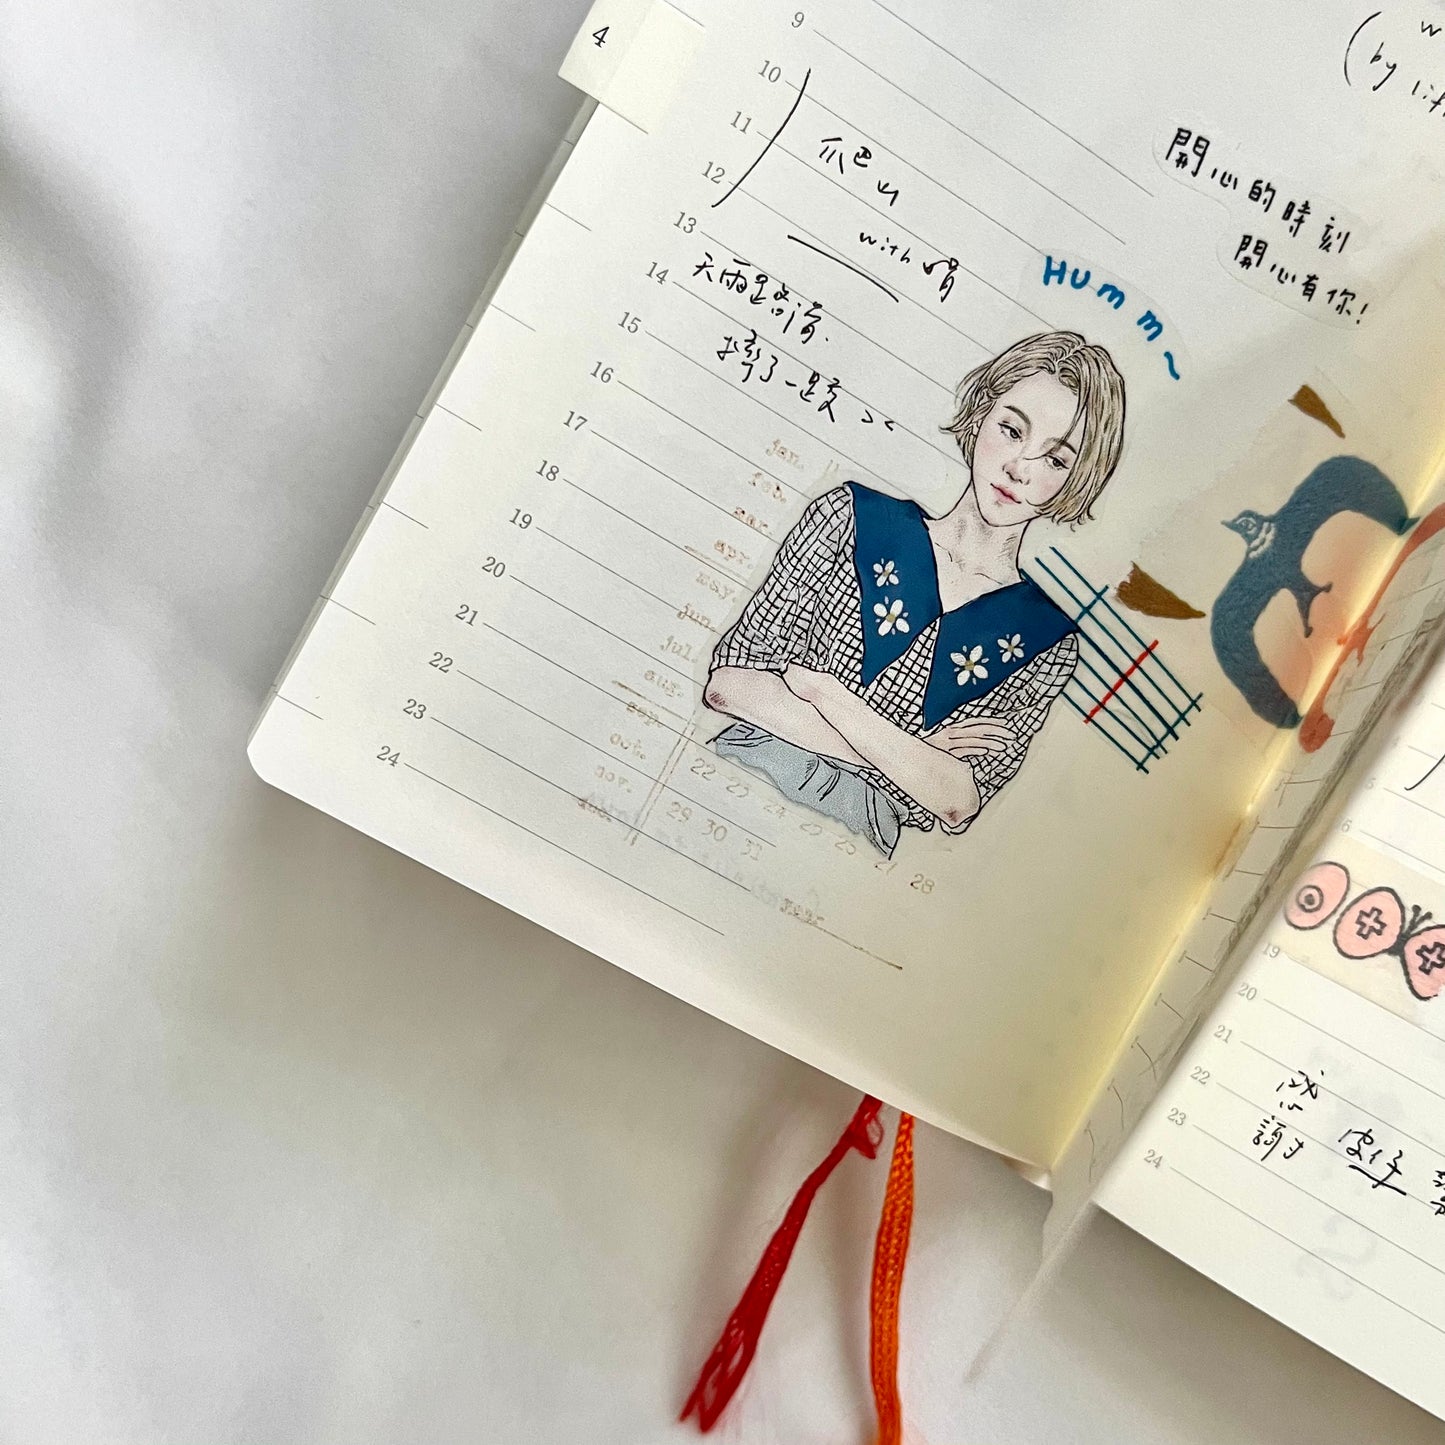 4
9
10
11
12
13
14
15
16
17
18
19
20
21
22
23
24
爬山
with
天雨路滑.
摔了一跤 ><
Humm~
(by
開心的時刻
開心有你!
jan.
feb.
mar.
apr.
may.
jun.
jul.
aug.
sep.
oct.
nov.
dec.
22 23 24 25 26 27 28
29 30 31
year
19
20
21
22
23
24
感
謝 皮仔